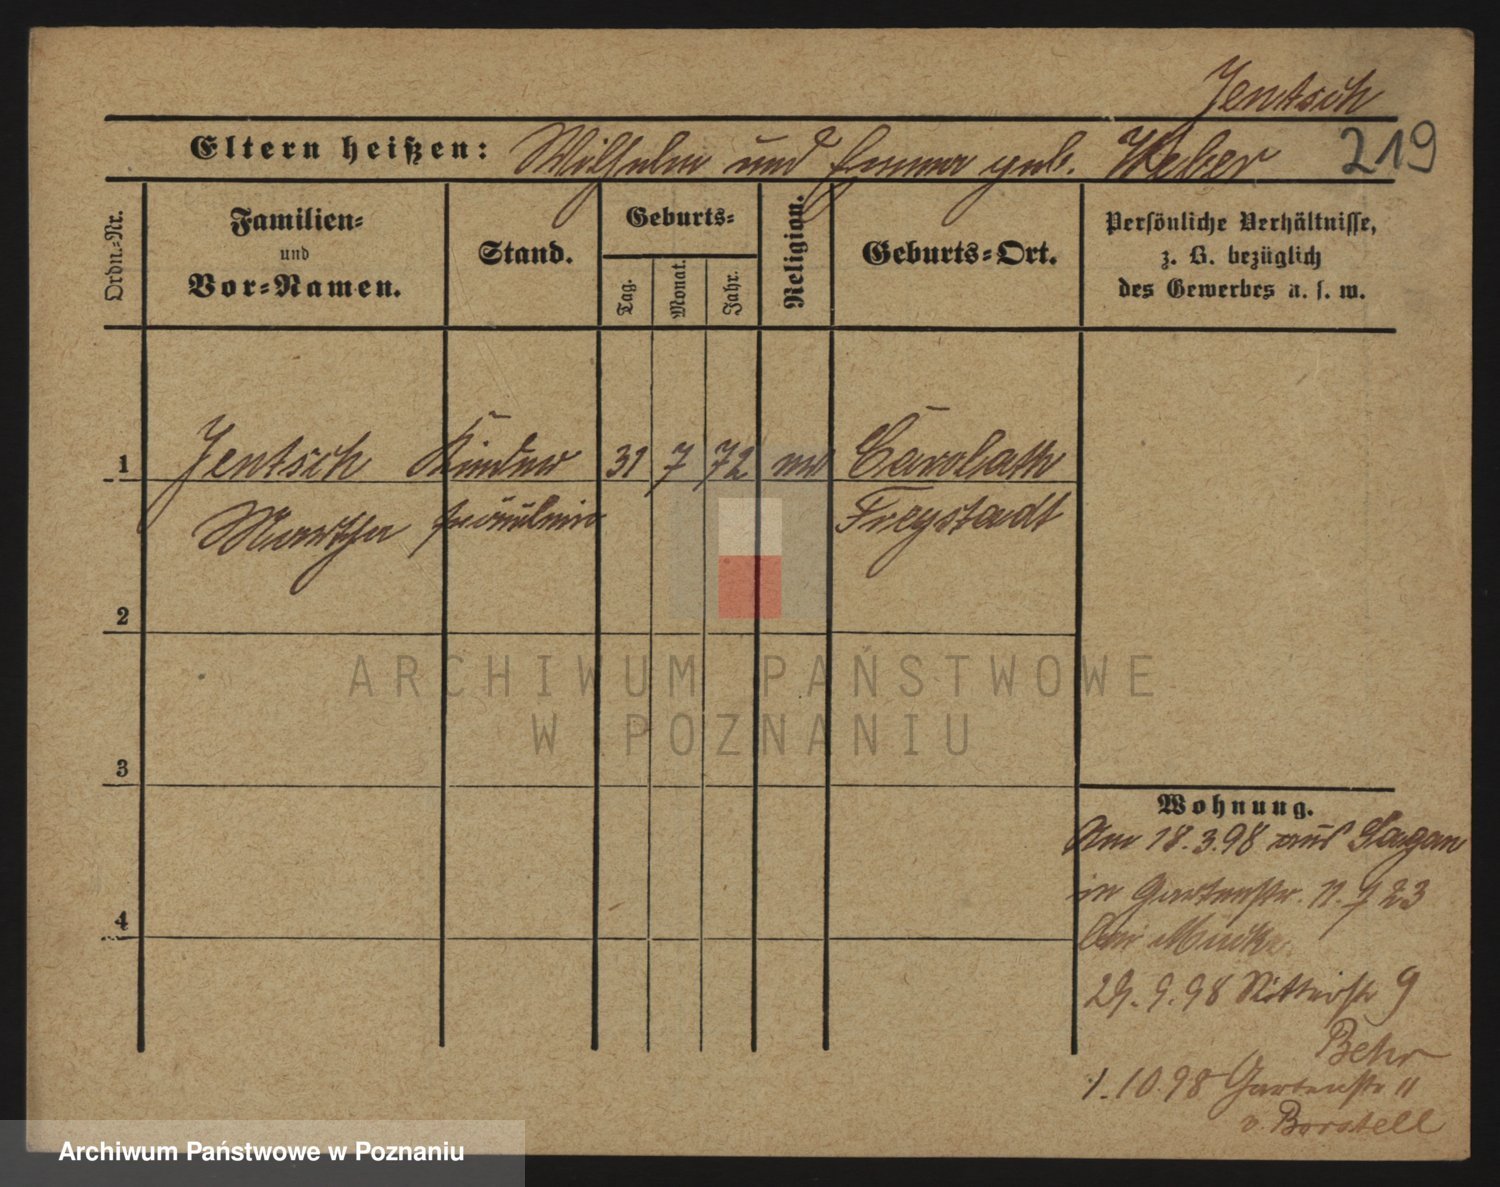 Jentsch
Eltern heißen: Wilhelm und Emma geb. Weber 219
Ordn.-Nr.
Familien-
und
Vor-Namen.
Stand.
Geburts-
Tag.
Monat.
Jahr.
Religion.
Geburts-Ort.
Persönliche Verhältnisse,
z. B. bezüglich
des Gewerbes u. s. w.
1 Jentsch Kinder 31 7 72 Carolath
Martha fräulein Freystadt
2
3
4
ARCHIWUM PAŃSTWOWE
W POZNANIU
Wohnung.
Am 18.3.98 aus Sagan
in Gartenstr. 11. 23
bei Mücke.
29. 9. 98 Ritterstr 9
Behr
1. 10. 98 Gartenstr 11
v. Borstell
Archiwum Państwowe w Poznaniu